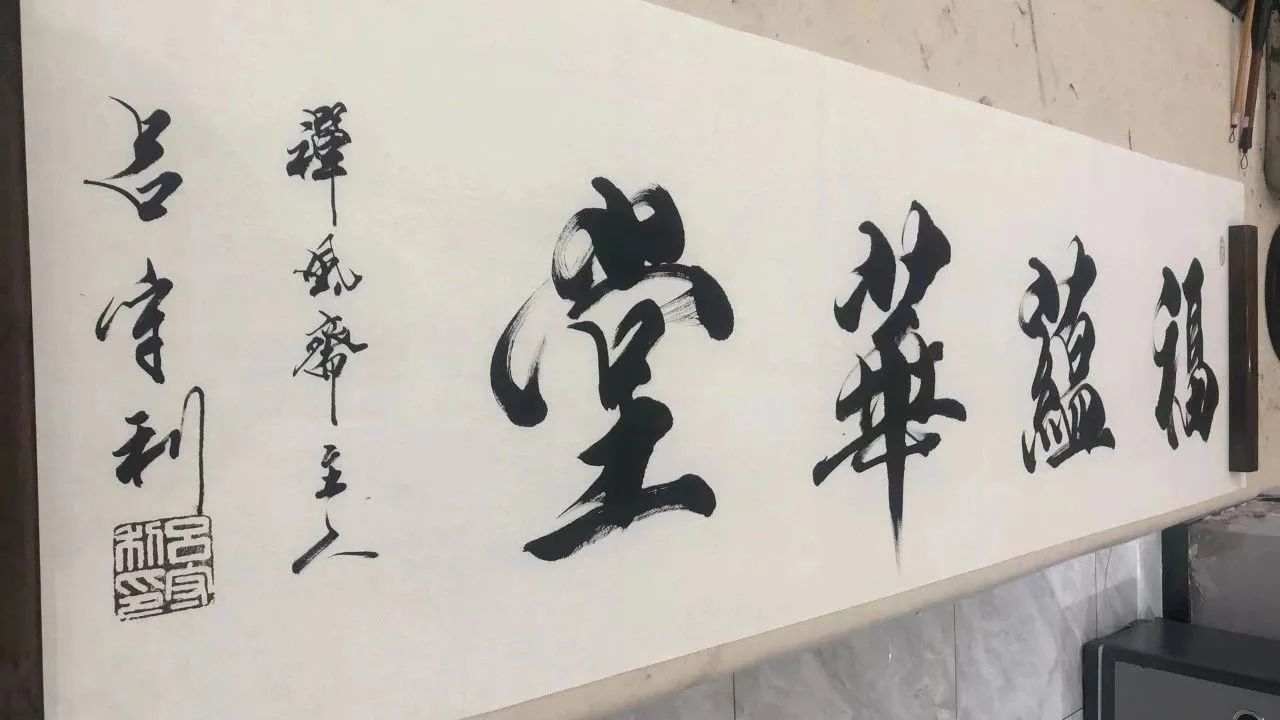 福蘊華堂
禪風齋主人
呂守利
呂守利印